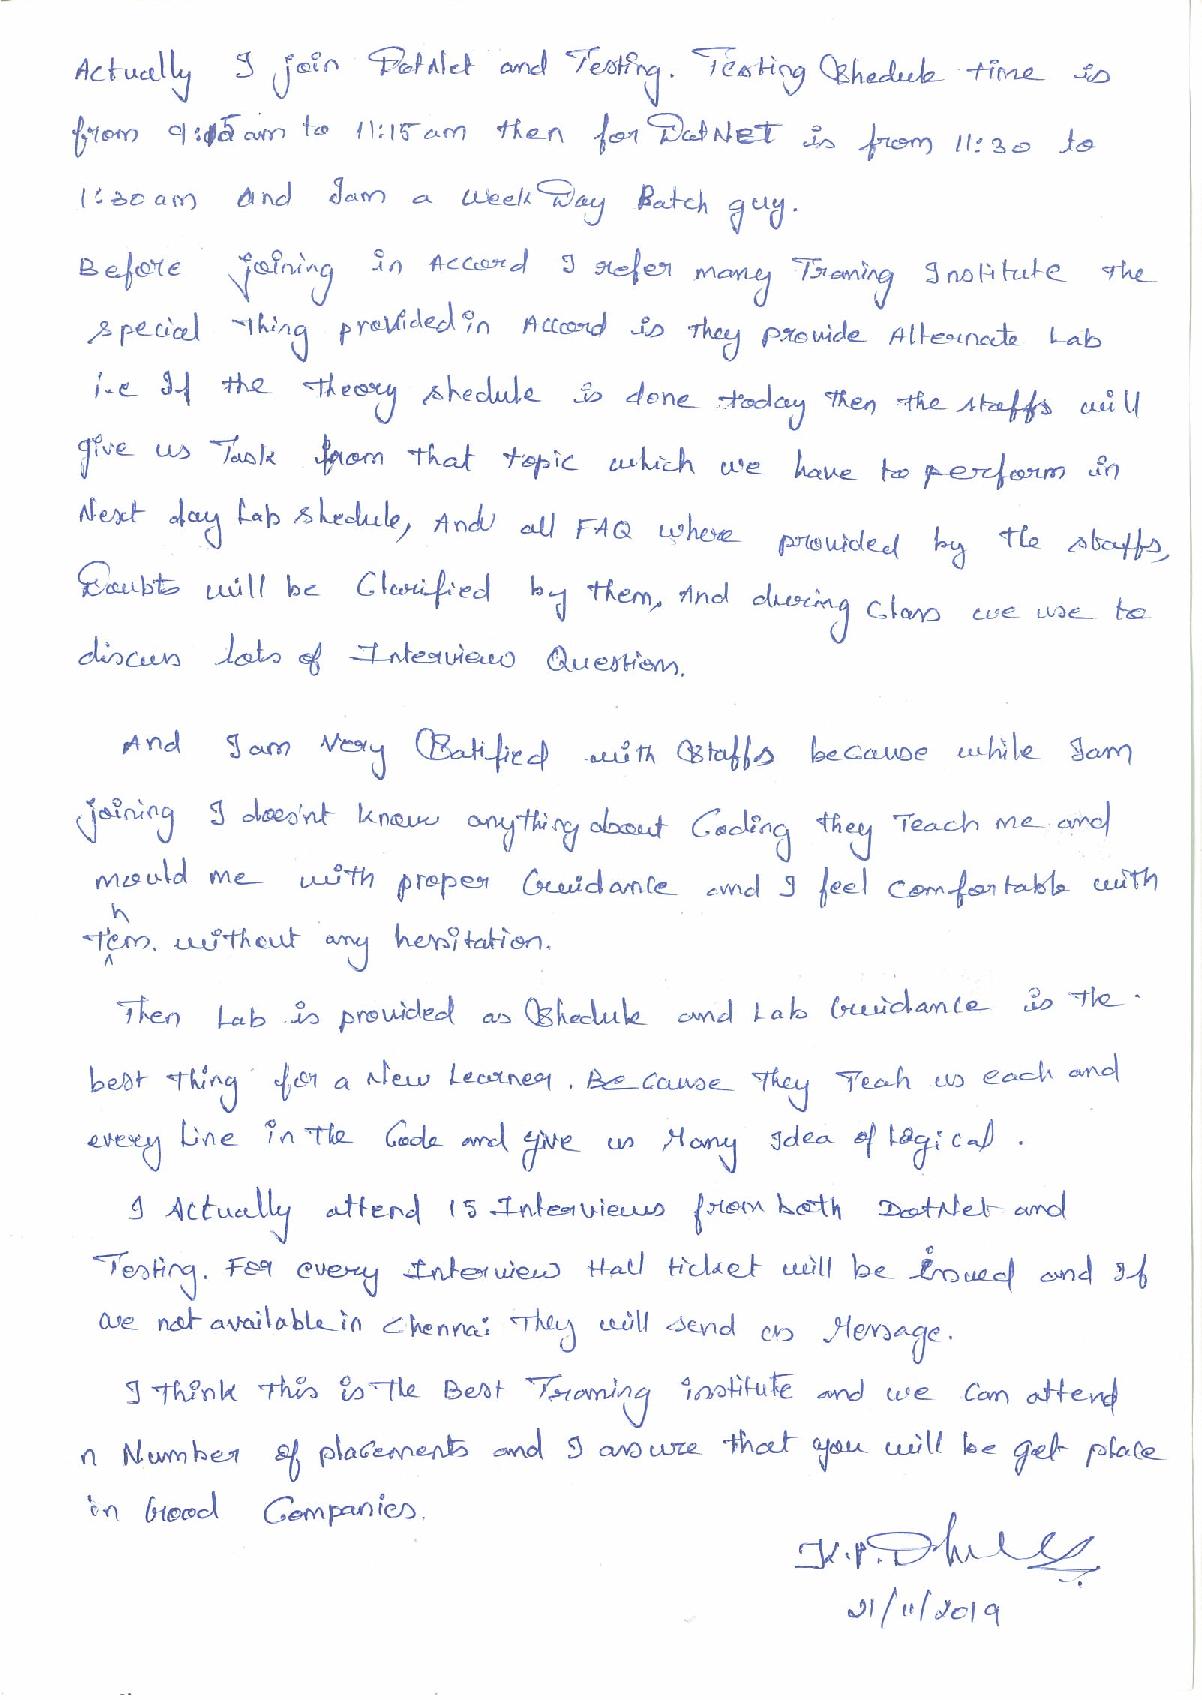 Actually I join DotNet and Testing. Testing Shedule time is
from 9:15am to 11:15am then for DotNET is from 11:30 to
1:30am And Iam a Week Day Batch guy.
Before joining in Accord I refer many Traning Institute the
special thing provided in Accord is they provide Alternate Lab
i.e If the theory shedule is done today then the staffs will
give us Task from that topic which we have to perform in
Next day Lab shedule, And all FAQ where provided by the staffs,
Doubts will be Clarified by them, And during Class we use to
discuss lots of Interview Questions.
And Iam Very Satified with Staffs because while Iam
joining I does'nt know anything about Coding they Teach me and
mould me with proper Guidance and I feel comfortable with
them. without any hesitation.
Then Lab is provided as Shedule and Lab Guidance is the
best thing for a New Learner. Because they Teah us each and
every Line in the Code and give us Many Idea of Logical.
I Actually attend 15 Interviews from both DotNet and
Testing. For every Interview Hall ticket will be issued and If
we not available in Chennai They will send as Message.
I think this is the Best Traning institute and we can attend
n Number of placements and I assure that you will be get place
in Good Companies.
K.P.
21/11/2019